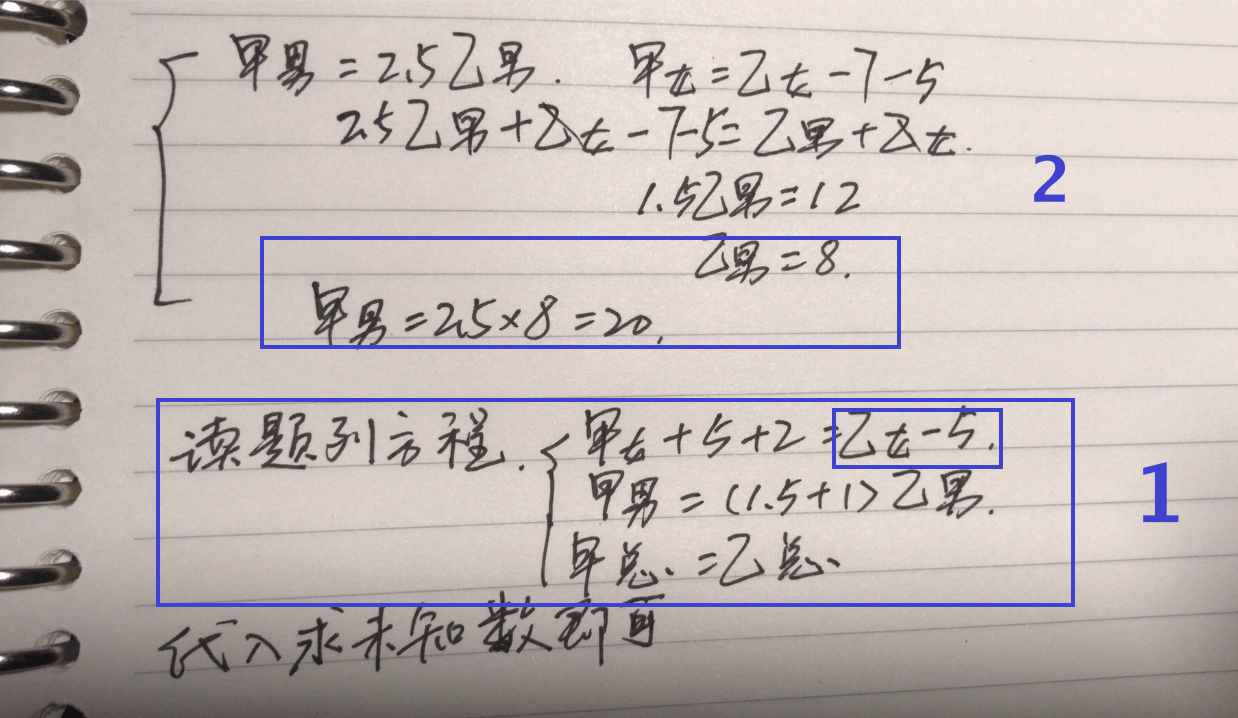 甲男=2.5乙男. 甲女=乙女-7-5
2.5乙男+乙女-7-5=乙男+乙女.
1.5乙男=12
2
乙男=8.
甲男=2.5×8=20.
读题列方程. 甲女+5+2=乙女-5.
甲男=(1.5+1)乙男.
1
甲总.=乙总.
代入求未知数即可